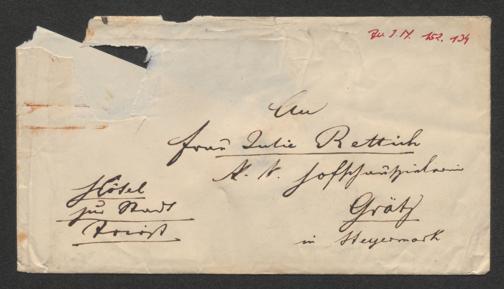 Zu I.N. 152.134
An
Frau Julie Rettich
K. K. Hofschauspielerin
Grätz
in Steyermark
Hôtel
zur Stadt
Triest